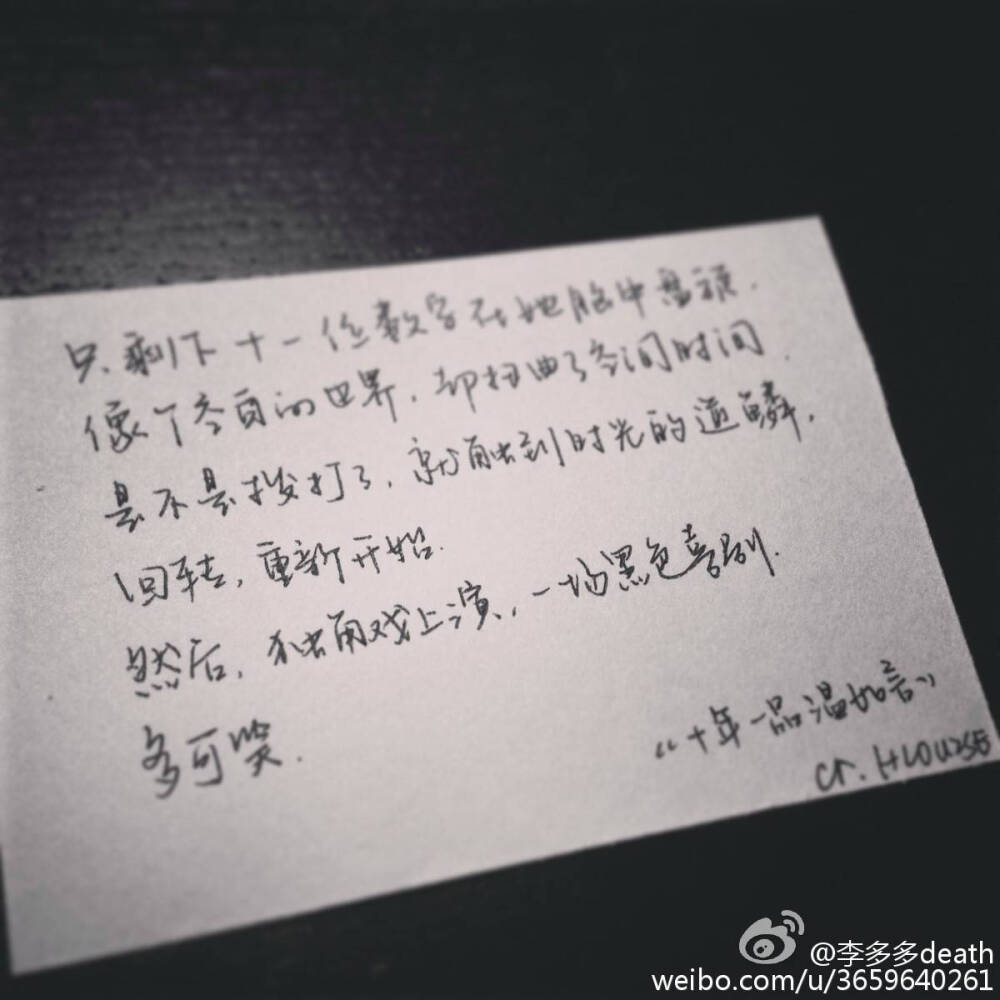 只剩下十一位数字在她脑中盘旋.
像个夸页的世界.却扭曲了空间时间.
是不是拨打了,就触到时光的逆鳞.
回转,重新开始.
然后,独角戏上演,一场黑色喜剧.
多可笑.
“十年一品温如言”
cr. HLOUISE
@李多多death
weibo.com/u/3659640261